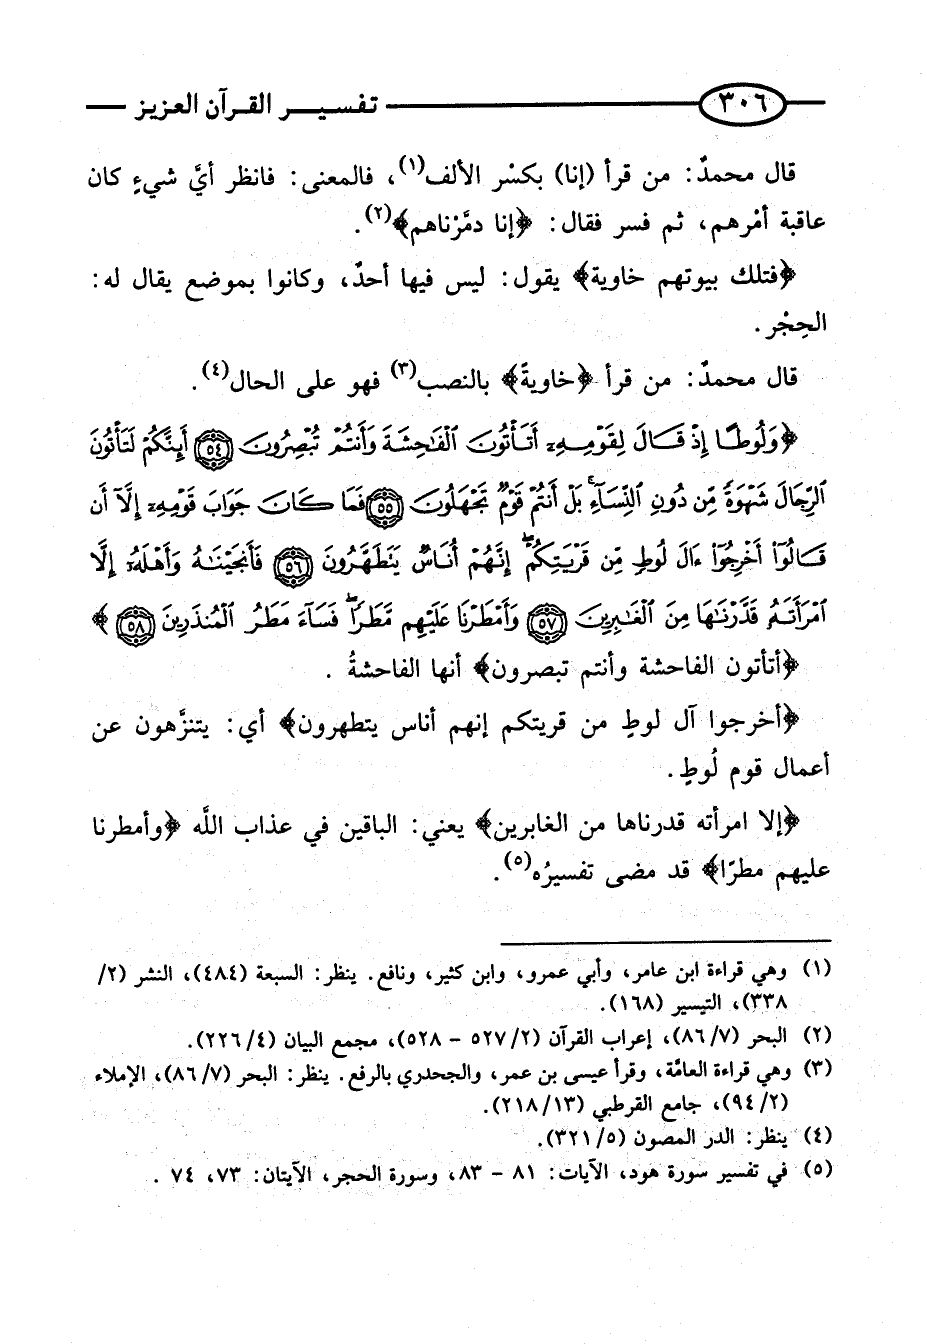 ٣٠٦ تفسيـر القـرآن العزيز
قال محمدٌ: من قرأ (إنا) بكسْر الألف(١)، فالمعنى: فانظر أيَّ شيءٍ كان
عاقبة أمْرهم، ثم فسر فقال: ﴿إنا دمَّرْناهم﴾(٢).
﴿فتلك بيوتهم خاوية﴾ يقول: ليس فيها أحدٌ، وكانوا بموضع يقال له:
الحِجْر.
قال محمدٌ: من قرأ ﴿خاويةً﴾ بالنصب(٣) فهو على الحال(٤).
﴿وَلُوطًا إِذْ قَالَ لِقَوْمِهِۦ أَتَأْتُونَ ٱلْفَٰحِشَةَ وَأَنتُمْ تُبْصِرُونَ ٥٤ أَئِنَّكُمْ لَتَأْتُونَ
ٱلرِّجَالَ شَهْوَةً مِّن دُونِ ٱلنِّسَآءِ ۚ بَلْ أَنتُمْ قَوْمٌ تَجْهَلُونَ ٥٥ فَمَا كَانَ جَوَابَ قَوْمِهِۦٓ إِلَّآ أَن
قَالُوٓا۟ أَخْرِجُوٓا۟ ءَالَ لُوطٍ مِّن قَرْيَتِكُمْ ۖ إِنَّهُمْ أُنَاسٌ يَتَطَهَّرُونَ ٥٦ فَأَنجَيْنَٰهُ وَأَهْلَهُۥٓ إِلَّا
ٱمْرَأَتَهُۥ قَدَّرْنَٰهَا مِنَ ٱلْغَٰبِرِينَ ٥٧ وَأَمْطَرْنَا عَلَيْهِم مَّطَرًا ۖ فَسَآءَ مَطَرُ ٱلْمُنذَرِينَ ٥٨﴾
﴿أتأتون الفاحشة وأنتم تبصرون﴾ أنها الفاحشةُ.
﴿أخرجوا آل لوطٍ من قريتكم إنهم أناس يتطهرون﴾ أي: يتنزَّهون عن
أعمال قوم لُوطٍ.
﴿إلا امرأته قدرناها من الغابرين﴾ يعني: الباقين في عذاب اللَّه ﴿وأمطرنا
عليهم مطرًا﴾ قد مضى تفسيرُه(٥).
(١) وهي قراءة ابن عامر، وأبي عمرو، وابن كثير، ونافع. ينظر: السبعة (٤٨٤)، النشر (٢/
٣٣٨)، التيسير (١٦٨).
(٢) البحر (٨٦/٧)، إعراب القرآن (٥٢٧/٢ - ٥٢٨)، مجمع البيان (٢٢٦/٤).
(٣) وهي قراءة العامَّة، وقرأ عيسى بن عمر، والجحدري بالرفع. ينظر: البحر (٨٦/٧)، الإملاء
(٩٤/٢)، جامع القرطبي (٢١٨/١٣).
(٤) ينظر: الدر المصون (٣٢١/٥).
(٥) في تفسير سورة هود، الآيات: ٨١ - ٨٣، وسورة الحجر، الآيتان: ٧٣، ٧٤.